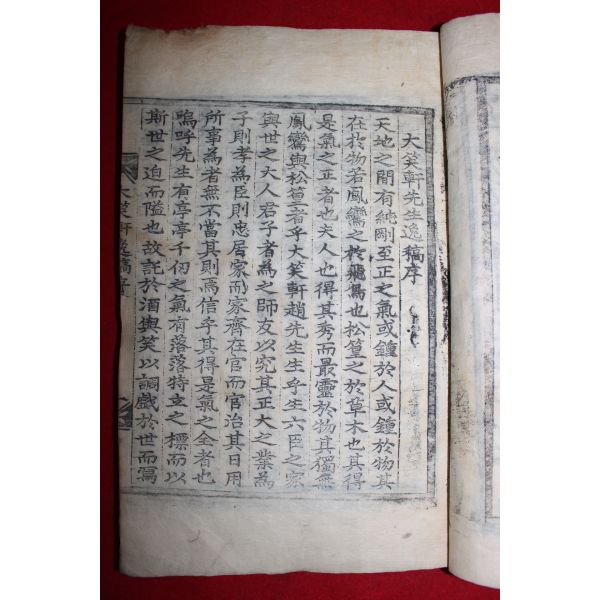 大笑軒先生逸稿序
天地之間有純剛至正之氣或鍾於人或鍾於物其
在於物若鳳鸞之於飛鳥也松篁之於草木也其得
是氣之正者也夫人也得其秀而最靈於物其獨無
鳳鸞與松篁者乎大笑軒趙先生生乎生六臣之家
與世之大人君子者為之師友以究其正大之業為
子則孝為臣則忠居家而家齊在官而官治其日用
所事為者無不當其則焉信乎其得是氣之全者也
嗚呼先生有亭亭千仞之氣有落落特立之標而以
斯世之迫而隘也故託於酒與笑以詞戲於世而寫
大笑軒逸稿序